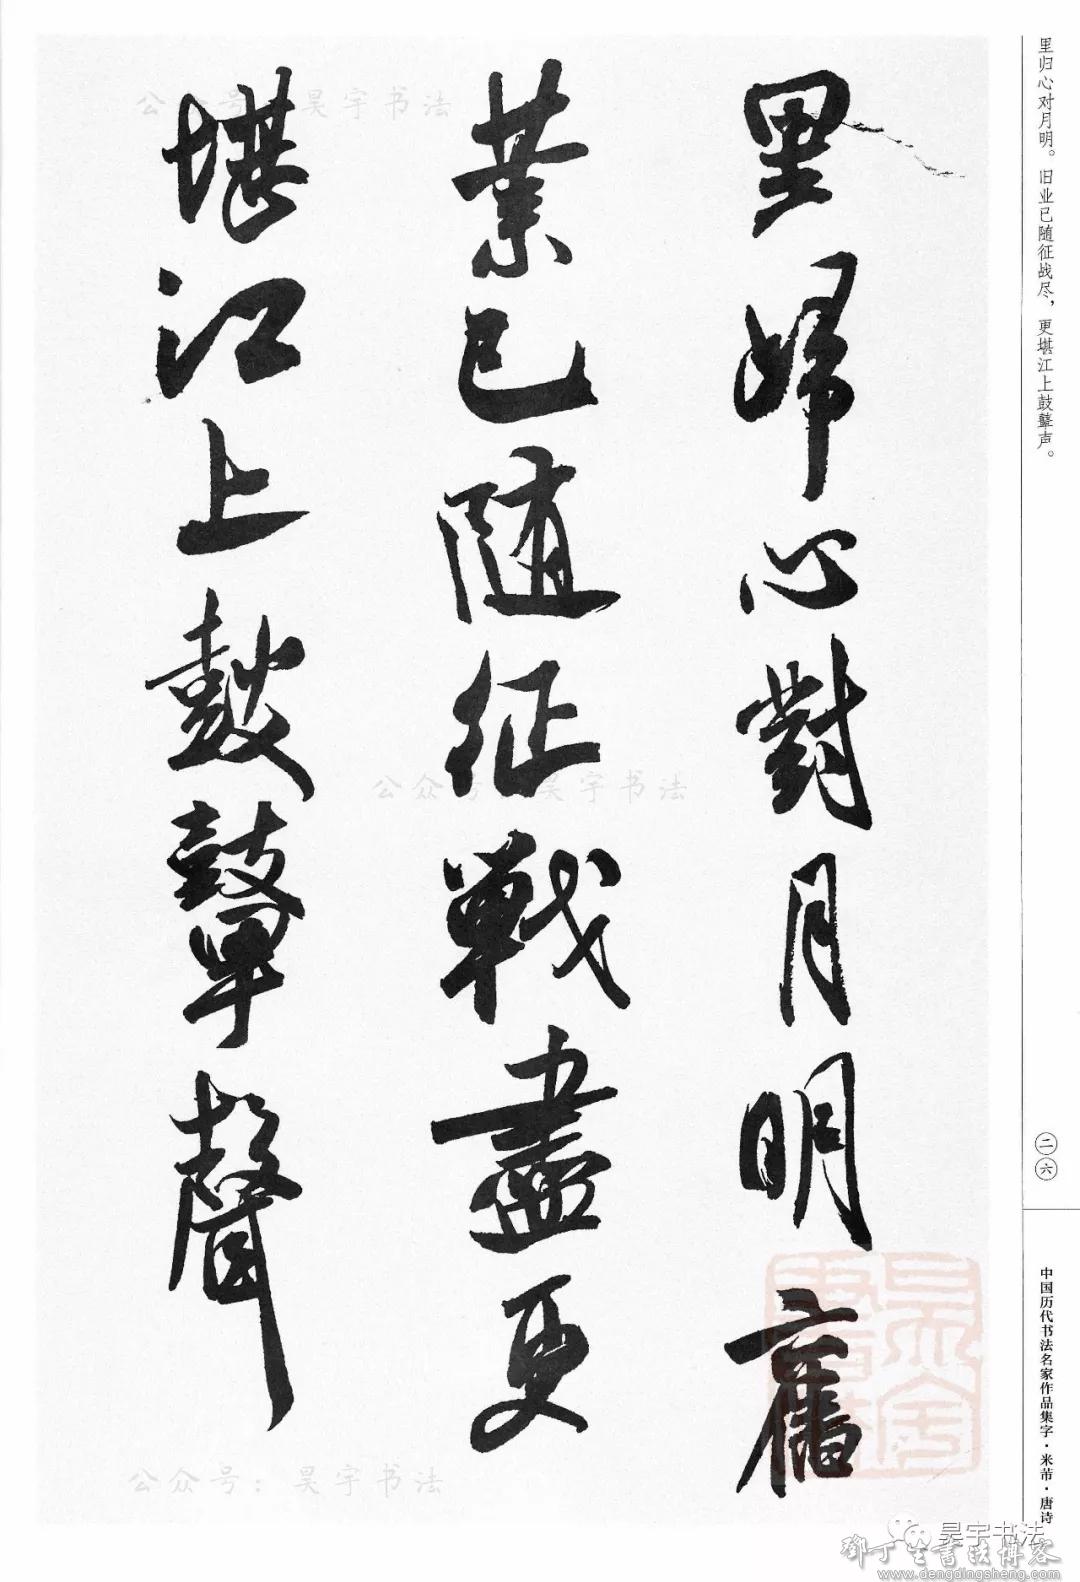 里归心对月明。旧业已随征战尽，更堪江上鼓鼙声。
里歸心對月明舊
業已隨征戰盡更
堪江上鼓鼙聲
二六
中国历代书法名家作品集字·米芾·唐诗
公众号：昊宇书法
公众号：昊宇书法
公众号：昊宇书法
昊宇书法
邓丁生书法博客
www.dengdingsheng.com